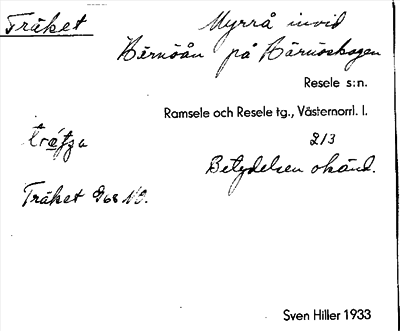 Träket
Myrrå invid
Härnöån på Härnöskogen
Resele s:n.
Ramsele och Resele tg., Västernorrl. l.
213
Betydelsen okänd.
Träket 968 NO.
Sven Hiller 1933